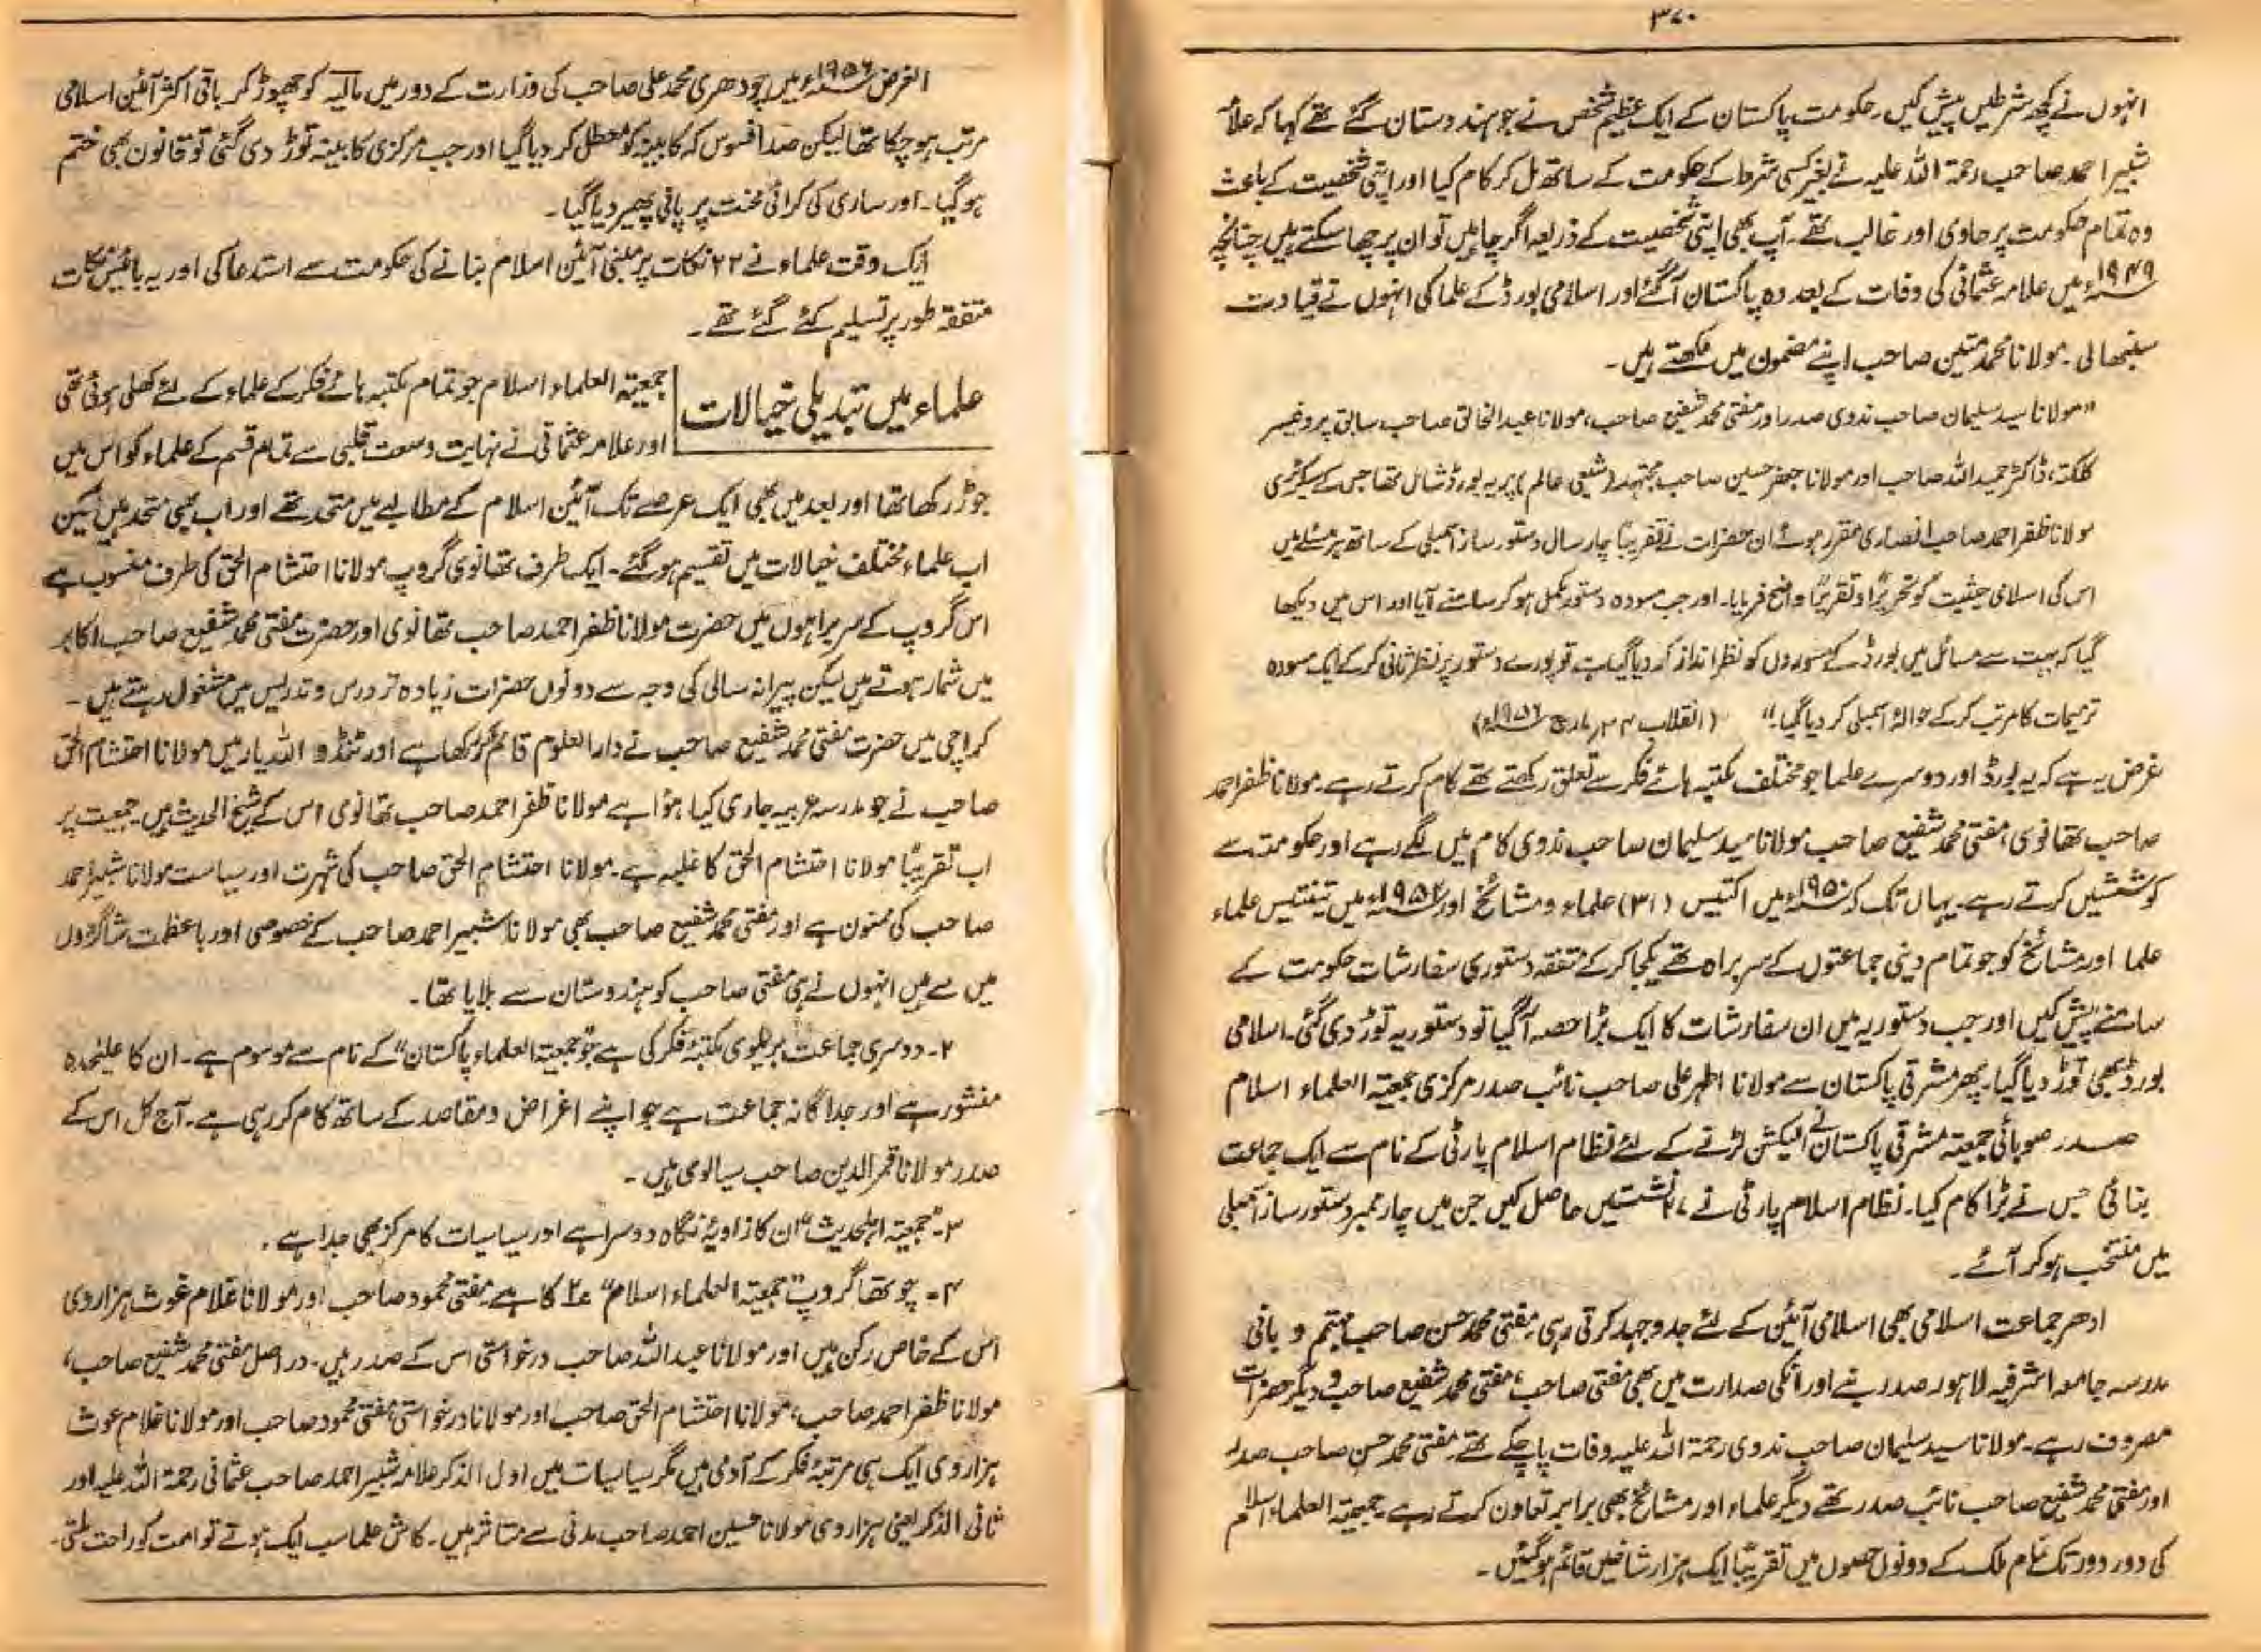 ۳۷۰
انہوں نے کچھ شرطیں پیش کیں۔ حکومت پاکستان کے ایک عظیم شخص نے جو ہندوستان گئے تھے کہا کہ علامہ
شبیر احمد صاحب رحمۃ اللہ علیہ نے بغیر کسی شرط کے حکومت کے ساتھ مل کر کام کیا اور اپنی شخصیت کے باعث
وہ تمام حکومت پر حاوی اور غالب تھے۔ آپ بھی اپنی شخصیت کے ذریعہ اگر چاہیں تو ان پر چھا سکتے ہیں چنانچہ
۱۹۴۹ء میں علامہ عثمانی کی وفات کے بعد وہ پاکستان آگئے اور اسلامی بورڈ کے علما کی انہوں نے قیادت
سنبھالی۔ مولانا محمد متین صاحب اپنے مضمون میں لکھتے ہیں۔
"مولانا سید سلیمان صاحب ندوی صدر اور مفتی محمد شفیع صاحب، مولانا عبدالخالق صاحب سابق پروفیسر
کلکتہ، ڈاکٹر حمید اللہ صاحب اور مولانا جعفر حسین صاحب مجتہد (شیعی عالم) پر یہ بورڈ شامل تھا جس کے سیکرٹری
مولانا ظفر احمد صاحب انصاری مقرر ہوئے ان حضرات نے تقریباً چار سال دستور ساز اسمبلی کے ساتھ ہر مسئلے میں
اس کی اسلامی حیثیت کو تحریراً و تقریراً واضح فرمایا۔ اور جب مسودہ دستور مکمل ہو کر سامنے آیا اور اس میں دیکھا
گیا کہ بہت سے مسائل میں بورڈ کے مسوروں کو نظر انداز کر دیا گیا ہے، تو پورے دستور پر نظر ثانی کر کے ایک مسودہ
ترمیمات کا مرتب کر کے حوالۂ اسمبلی کر دیا گیا۔" (انقلاب ۲۴ مارچ ۱۹۵۶ء)
غرض یہ ہے کہ یہ بورڈ اور دوسرے علما جو مختلف مکتبہ ہائے فکر سے تعلق رکھتے تھے کام کرتے رہے۔ مولانا ظفر احمد
صاحب تھانوی، مفتی محمد شفیع صاحب مولانا سید سلیمان صاحب ندوی کام میں لگے رہے اور حکومت سے
کوششیں کرتے رہے۔ یہاں تک کہ ۱۹۵۰ء میں اکتیس (۳۱) علماء و مشائخ اور ۱۹۵۲ء میں تینتیس علماء
علما اور مشائخ کو جو تمام دینی جماعتوں کے سربراہ تھے یکجا کر کے متفقہ دستوری سفارشات حکومت کے
سامنے پیش کیں اور جب دستوریہ میں ان سفارشات کا ایک بڑا حصہ آگیا تو دستوریہ توڑ دی گئی۔ اسلامی
بورڈ بھی توڑ دیا گیا۔ پھر مشرقی پاکستان سے مولانا اطہر علی صاحب نائب صدر مرکزی جمعیۃ العلماء اسلام
صدر صوبائی جمعیۃ مشرقی پاکستان نے الیکشن لڑنے کے لئے نظام اسلام پارٹی کے نام سے ایک جماعت
بنائی جس نے بڑا کام کیا۔ نظام اسلام پارٹی نے ۲۷ نشستیں حاصل کیں جن میں چار ممبر دستور ساز اسمبلی
میں منتخب ہو کر آئے۔
ادھر جماعت اسلامی بھی اسلامی آئین کے لئے جدوجہد کرتی رہی۔ مفتی محمد حسن صاحب مہتمم و بانی
مدرسہ جامعہ اشرفیہ لاہور صدر بنے اور انکی صدارت میں بھی مفتی صاحب، مفتی محمد شفیع صاحب و دیگر حضرات
مصروف رہے۔ مولانا سید سلیمان صاحب ندوی رحمۃ اللہ علیہ وفات پا چکے تھے۔ مفتی محمد حسن صاحب صدر
اور مفتی محمد شفیع صاحب نائب صدر تھے دیگر علماء اور مشائخ بھی برابر تعاون کرتے رہے۔ جمعیۃ العلماء اسلام
کی دور دور تک تمام ملک کے دونوں حصوں میں تقریباً ایک ہزار شاخیں قائم ہوگئیں۔
الغرض ۱۹۵۶ء میں چودھری محمد علی صاحب کی وزارت کے دور میں مالیہ کو چھوڑ کر باقی اکثر آئین اسلامی
مرتب ہو چکا تھا لیکن صد افسوس کہ کابینہ کو معطل کر دیا گیا اور جب مرکزی کابینہ توڑ دی گئی تو قانون بھی ختم
ہوگیا۔ اور ساری کی کرائی محنت پر پانی پھیر دیا گیا۔
ایک وقت علماء نے ۲۲ نکات پر مبنی آئین اسلام بنانے کی حکومت سے استدعا کی اور یہ بائیس نکات
متفقہ طور پر تسلیم کئے گئے تھے۔
علماء میں تبدیلی خیالات
جمعیۃ العلماء اسلام جو تمام مکتبہ ہائے فکر کے علماء کے لئے کھلی ہوئی تھی
اور علامہ عثمانی نے نہایت وسعت قلبی سے تمام قسم کے علماء کو اس میں
جوڑ رکھا تھا اور بعد میں بھی ایک عرصے تک آئین اسلام کے مطالبے میں متحد تھے اور اب بھی متحد ہیں لیکن
اب علماء مختلف خیالات میں تقسیم ہوگئے۔ ایک طرف تھانوی گروپ مولانا احتشام الحق کی طرف منسوب ہے
اس گروپ کے سربراہوں میں حضرت مولانا ظفر احمد صاحب تھانوی اور حضرت مفتی محمد شفیع صاحب اکابر
میں شمار ہوتے ہیں لیکن پیرانہ سالی کی وجہ سے دونوں حضرات زیادہ تر درس و تدریس میں مشغول رہتے ہیں۔
کراچی میں حضرت مفتی محمد شفیع صاحب نے دارالعلوم قائم کر رکھا ہے اور ٹنڈو اللہ یار میں مولانا احتشام الحق
صاحب نے جو مدرسہ عربیہ جاری کیا ہوا ہے مولانا ظفر احمد صاحب تھانوی اس کے شیخ الحدیث ہیں۔ جمعیت پر
اب تقریباً مولانا احتشام الحق کا غلبہ ہے۔ مولانا احتشام الحق صاحب کی شہرت اور سیاست مولانا شبیر احمد
صاحب کی ممنون ہے اور مفتی محمد شفیع صاحب بھی مولانا شبیر احمد صاحب کے خصوصی اور باعظمت شاگردوں
میں سے ہیں انہوں نے ہی مفتی صاحب کو ہندوستان سے بلایا تھا۔
۲۔ دوسری جماعت بریلوی مکتبۂ فکر کی ہے جو "جمعیۃ العلماء پاکستان" کے نام سے موسوم ہے۔ ان کا علیحدہ
منشور ہے اور جداگانہ جماعت ہے جو اپنے اغراض و مقاصد کے ساتھ کام کر رہی ہے۔ آج کل اس کے
صدر مولانا قمر الدین صاحب سیالوی ہیں۔
۳۔ "جمعیۃ اہلحدیث" ان کا زاویۂ نگاہ دوسرا ہے اور سیاسیات کا مرکز بھی جدا ہے۔
۴۔ چوتھا گروپ "جمعیۃ العلماء اسلام" ۲ کا ہے۔ مفتی محمود صاحب اور مولانا غلام غوث ہزاروی
اس کے خاص رکن ہیں اور مولانا عبداللہ صاحب درخواستی اس کے صدر ہیں۔ دراصل مفتی محمد شفیع صاحب،
مولانا ظفر احمد صاحب، مولانا احتشام الحق صاحب اور مولانا درخواستی مفتی محمود صاحب اور مولانا غلام غوث
ہزاروی ایک ہی مرتبۂ فکر کے آدمی ہیں مگر سیاسیات میں اول الذکر علامہ شبیر احمد صاحب عثمانی رحمۃ اللہ علیہ اور
ثانی الذکر یعنی ہزاروی مولانا حسین احمد صاحب مدنی سے متاثر ہیں۔ کاش علما سب ایک ہوتے تو امت کو راحت ملتی۔